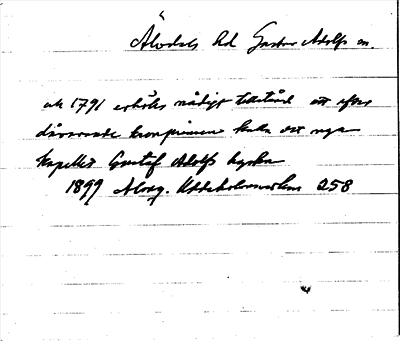 Älvdals hd Gustav Adolfs sn.
ak 1791 erhölls nådigt tillstånd att efter
dåvarande kronprinsen kalla det nya
kapellet Gustaf Adolfs kyrka
1899 Uddeholmsverken 258